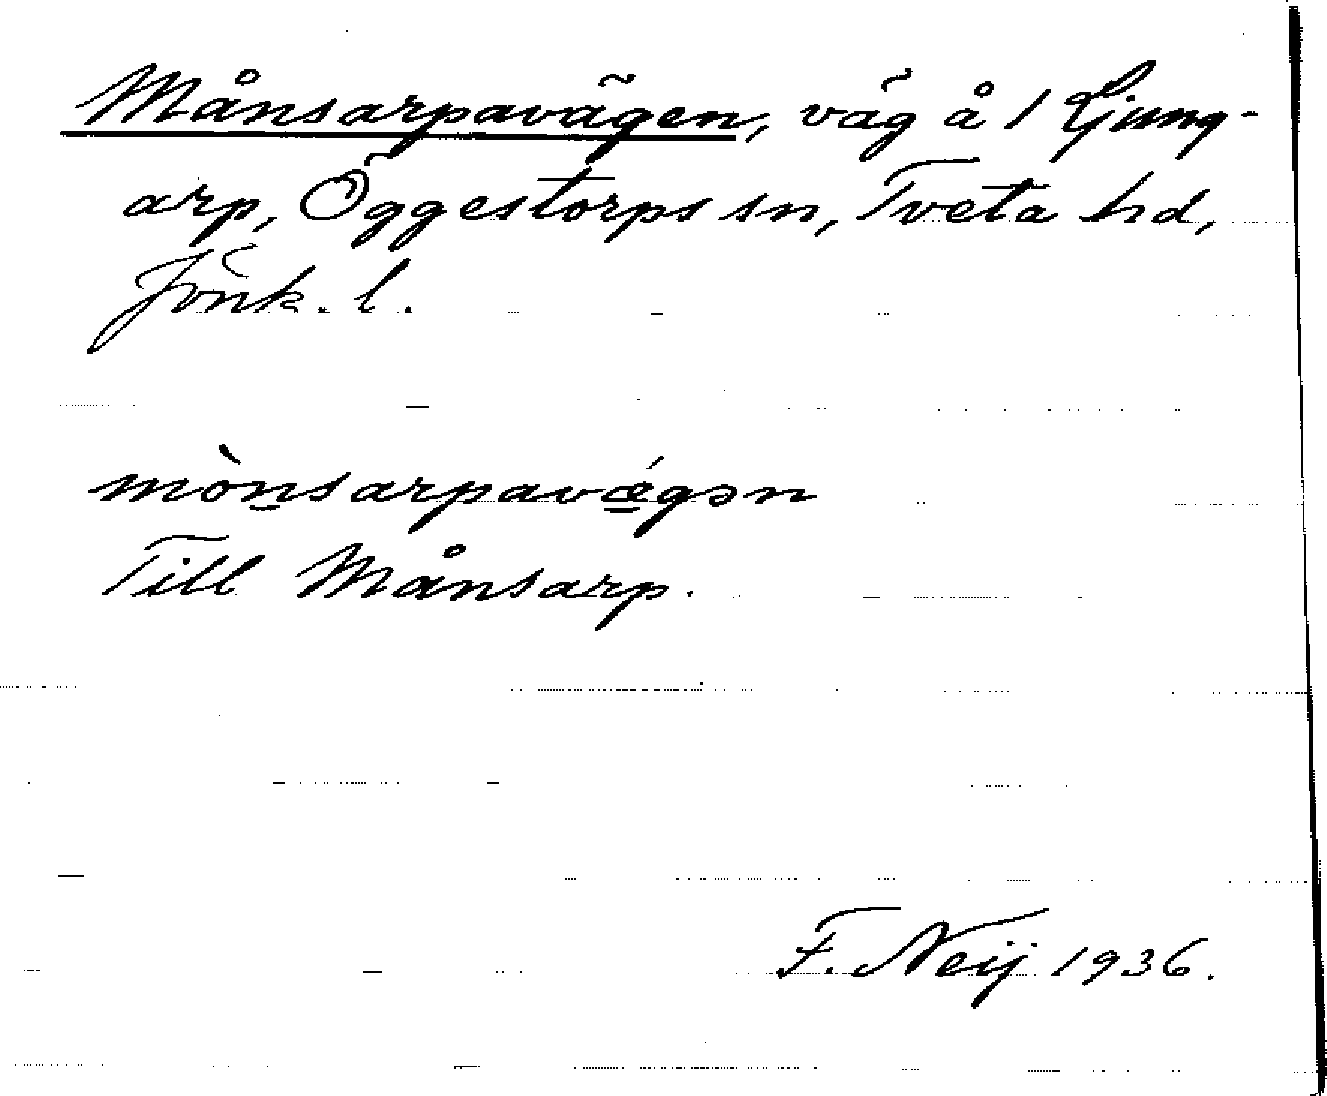 Månsarpavägen, väg å 1 Ljung-
arp, Öggestorps sn, Tveta hd,
Jönk. l.
mònsarpavǽgən
Till Månsarp.
F. Neij 1936.